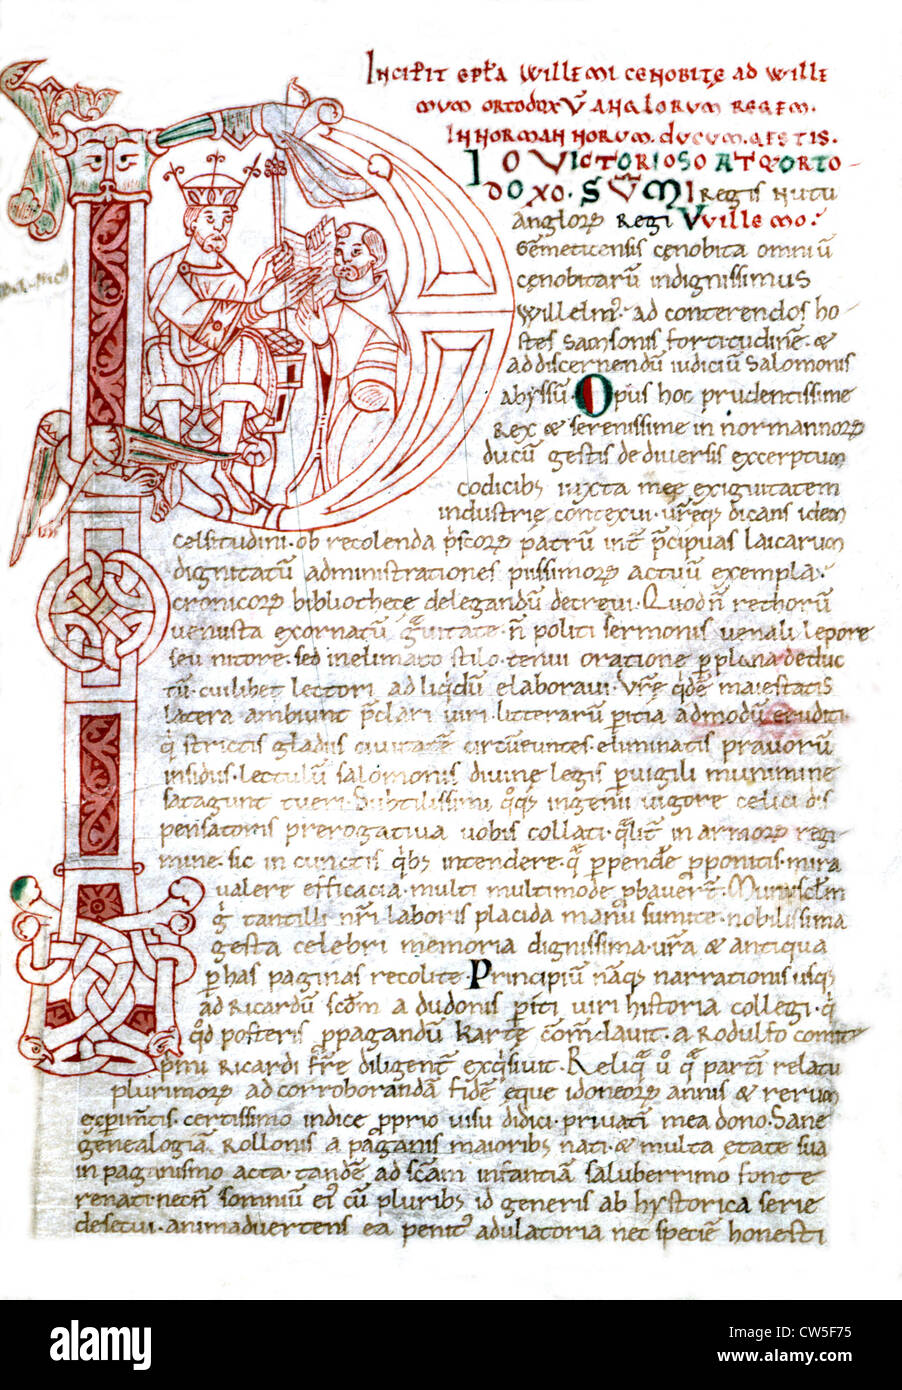 Incipit epl̄a Willemi cenobitę ad Wille
mum ortodoxū Anglorum regem.
In Normannorum ducum gestis.
PIO VICTORIOSO ATQ ORTO-
DOXO. SŪMI regis nutu
anglorꝝ regi Willemo.
Gemeticensis cęnobita omniū
cęnobitarū indignissimus
Willelm̄. ad conterendos ho-
stes samsonis fortitudinē. &
ad discernendū iudiciū salomonis
abyssū. Opus hoc prudentissime
rex & serenissime in normannorꝝ
ducū gestis de diversis excerptum
codicibꝰ iuxta meę exiguitatem
industrię contexui. urēq; dicans idem
celsitudini. ob recolenda p̄scorꝝ patrū int̄ p̄cipuas laicarum
dignitatū administrationes piissimorꝝ actuū exempla.
cronicorꝝ bibliothecę delegandū decrevi. Quod n̄ rethorū
venusta exornatū gͣvitate. n̄ politi sermonis venali lepore
seu nitore. sed in elimato stilo. tenui oratione p̱ plana deduc
tū. cuilibet lectori ad liq̄dū elaboravi. Vrē q̄dē maiestatis
latera ambiunt p̄clari viri. litterarū p̱itia admodū eruditi
q̄ strictis gladiis civitatē circūeuntes. eliminatis pravorū
insidiis. lectulū salomonis divinę legis p̱vigili munimine
satagunt tueri. Subtilissimi q̄q; ingenii vigore celici dis
pensatoris prerogativa vobis collati. q̄lit̄ in armorꝝ regi
mine. sic in cunctis q̄bꝰ intendere. q̄ p̱pendē p̱ponitis. mira
valere efficacia. multi multimode p̱bavert̄.
g̣ tantilli nr̄i laboris placida manū sumite. nobilissima
gesta celebri memoria dignissima. ur̄a & antiqua
p̱ has paginas recolite. Principiū nāq; narrationis usq;
ad Ricardū scdm̄ a dudonis p̱iti viri historia collegi. q̄
q̄d posteris p̱pagandū kartę com̄lavit. a Rodulfo comite
pmi Ricardi fr̄e diligent̄ exq̄sivit. Reliq̄ ū q̄ partī relatu
plurimorꝝ ad corroborandā fidē ęque idoneorꝝ annis & rerum
exp̱imtis. certissimo indice p̱prio visu didici. privati mea dono. Sane
genealogiā Rollonis a paganis maioribꝰ nati. & multa ętate sua
in paganismo acta. tandē ad scām infantiā saluberrimo fonte
renati. necn̄ somniū ei cū pluribꝰ id generis ab hystorica serie
desecui. animadvertens ea penit̄ adulatoria nec spetiē honesti